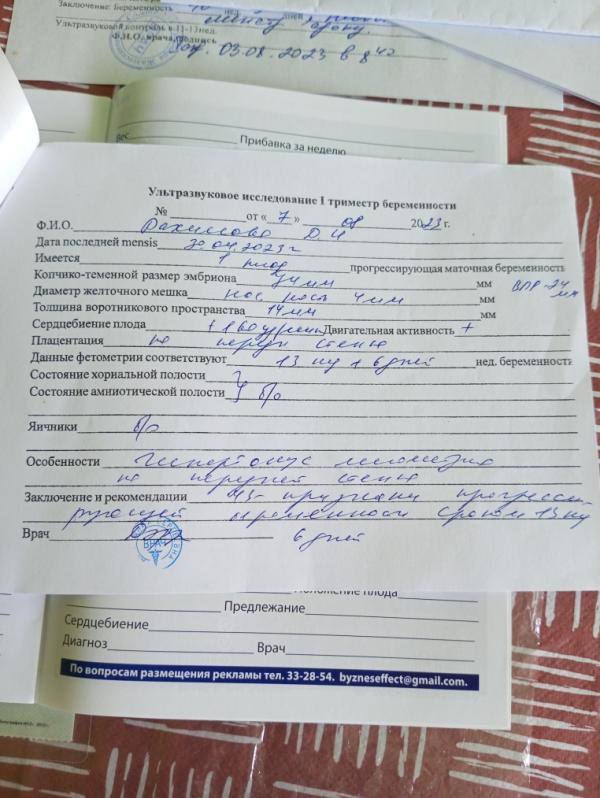 Заключение: Беременность
Ультразвуковой контроль в 11-13 нед.
Ф.И.О. врача, подпись
03.08.2023 в 8
Вес
Прибавка за неделю
Ультразвуковое исследование I триместр беременности
№ от « 7 » 08 2023 г.
Ф.И.О.
Дата последней mensis 20.04.2023 г
Имеется 1 плод прогрессирующая маточная беременность
Копчико-теменной размер эмбриона мм
Диаметр желточного мешка нос. кость 4 мм мм
Толщина воротникового пространства 14 мм мм
Сердцебиение плода Двигательная активность +
Плацентация по передн стенке
Данные фетометрии соответствуют 13 нд 6 дней нед. беременности
Состояние хориальной полости
Состояние амниотической полости б/о
Яичники б/о
Особенности Гипертонус миометрия
по передней стенке
Заключение и рекомендации УЗ- признаки прогресси-
рующей беременности сроком 13 нд
Врач 6 дней
Положение плода
Предлежание
Сердцебиение
Диагноз Врач
По вопросам размещения рекламы тел. 33-28-54. byzneseffect@gmail.com.